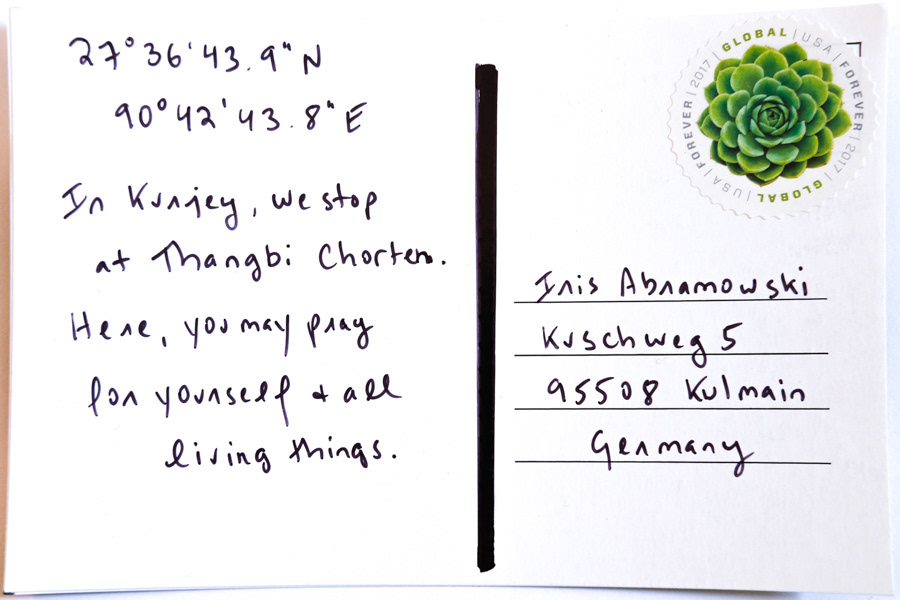 27°36'43.9"N
90°42'43.8"E
In Kurjey, we stop
at Thangbi Chorten.
Here, you may pray
for yourself + all
living things.
GLOBAL | USA | FOREVER | 2017 | GLOBAL | USA | FOREVER | 2017 |
Iris Abramowski
Kuschweg 5
95508 Kulmain
Germany